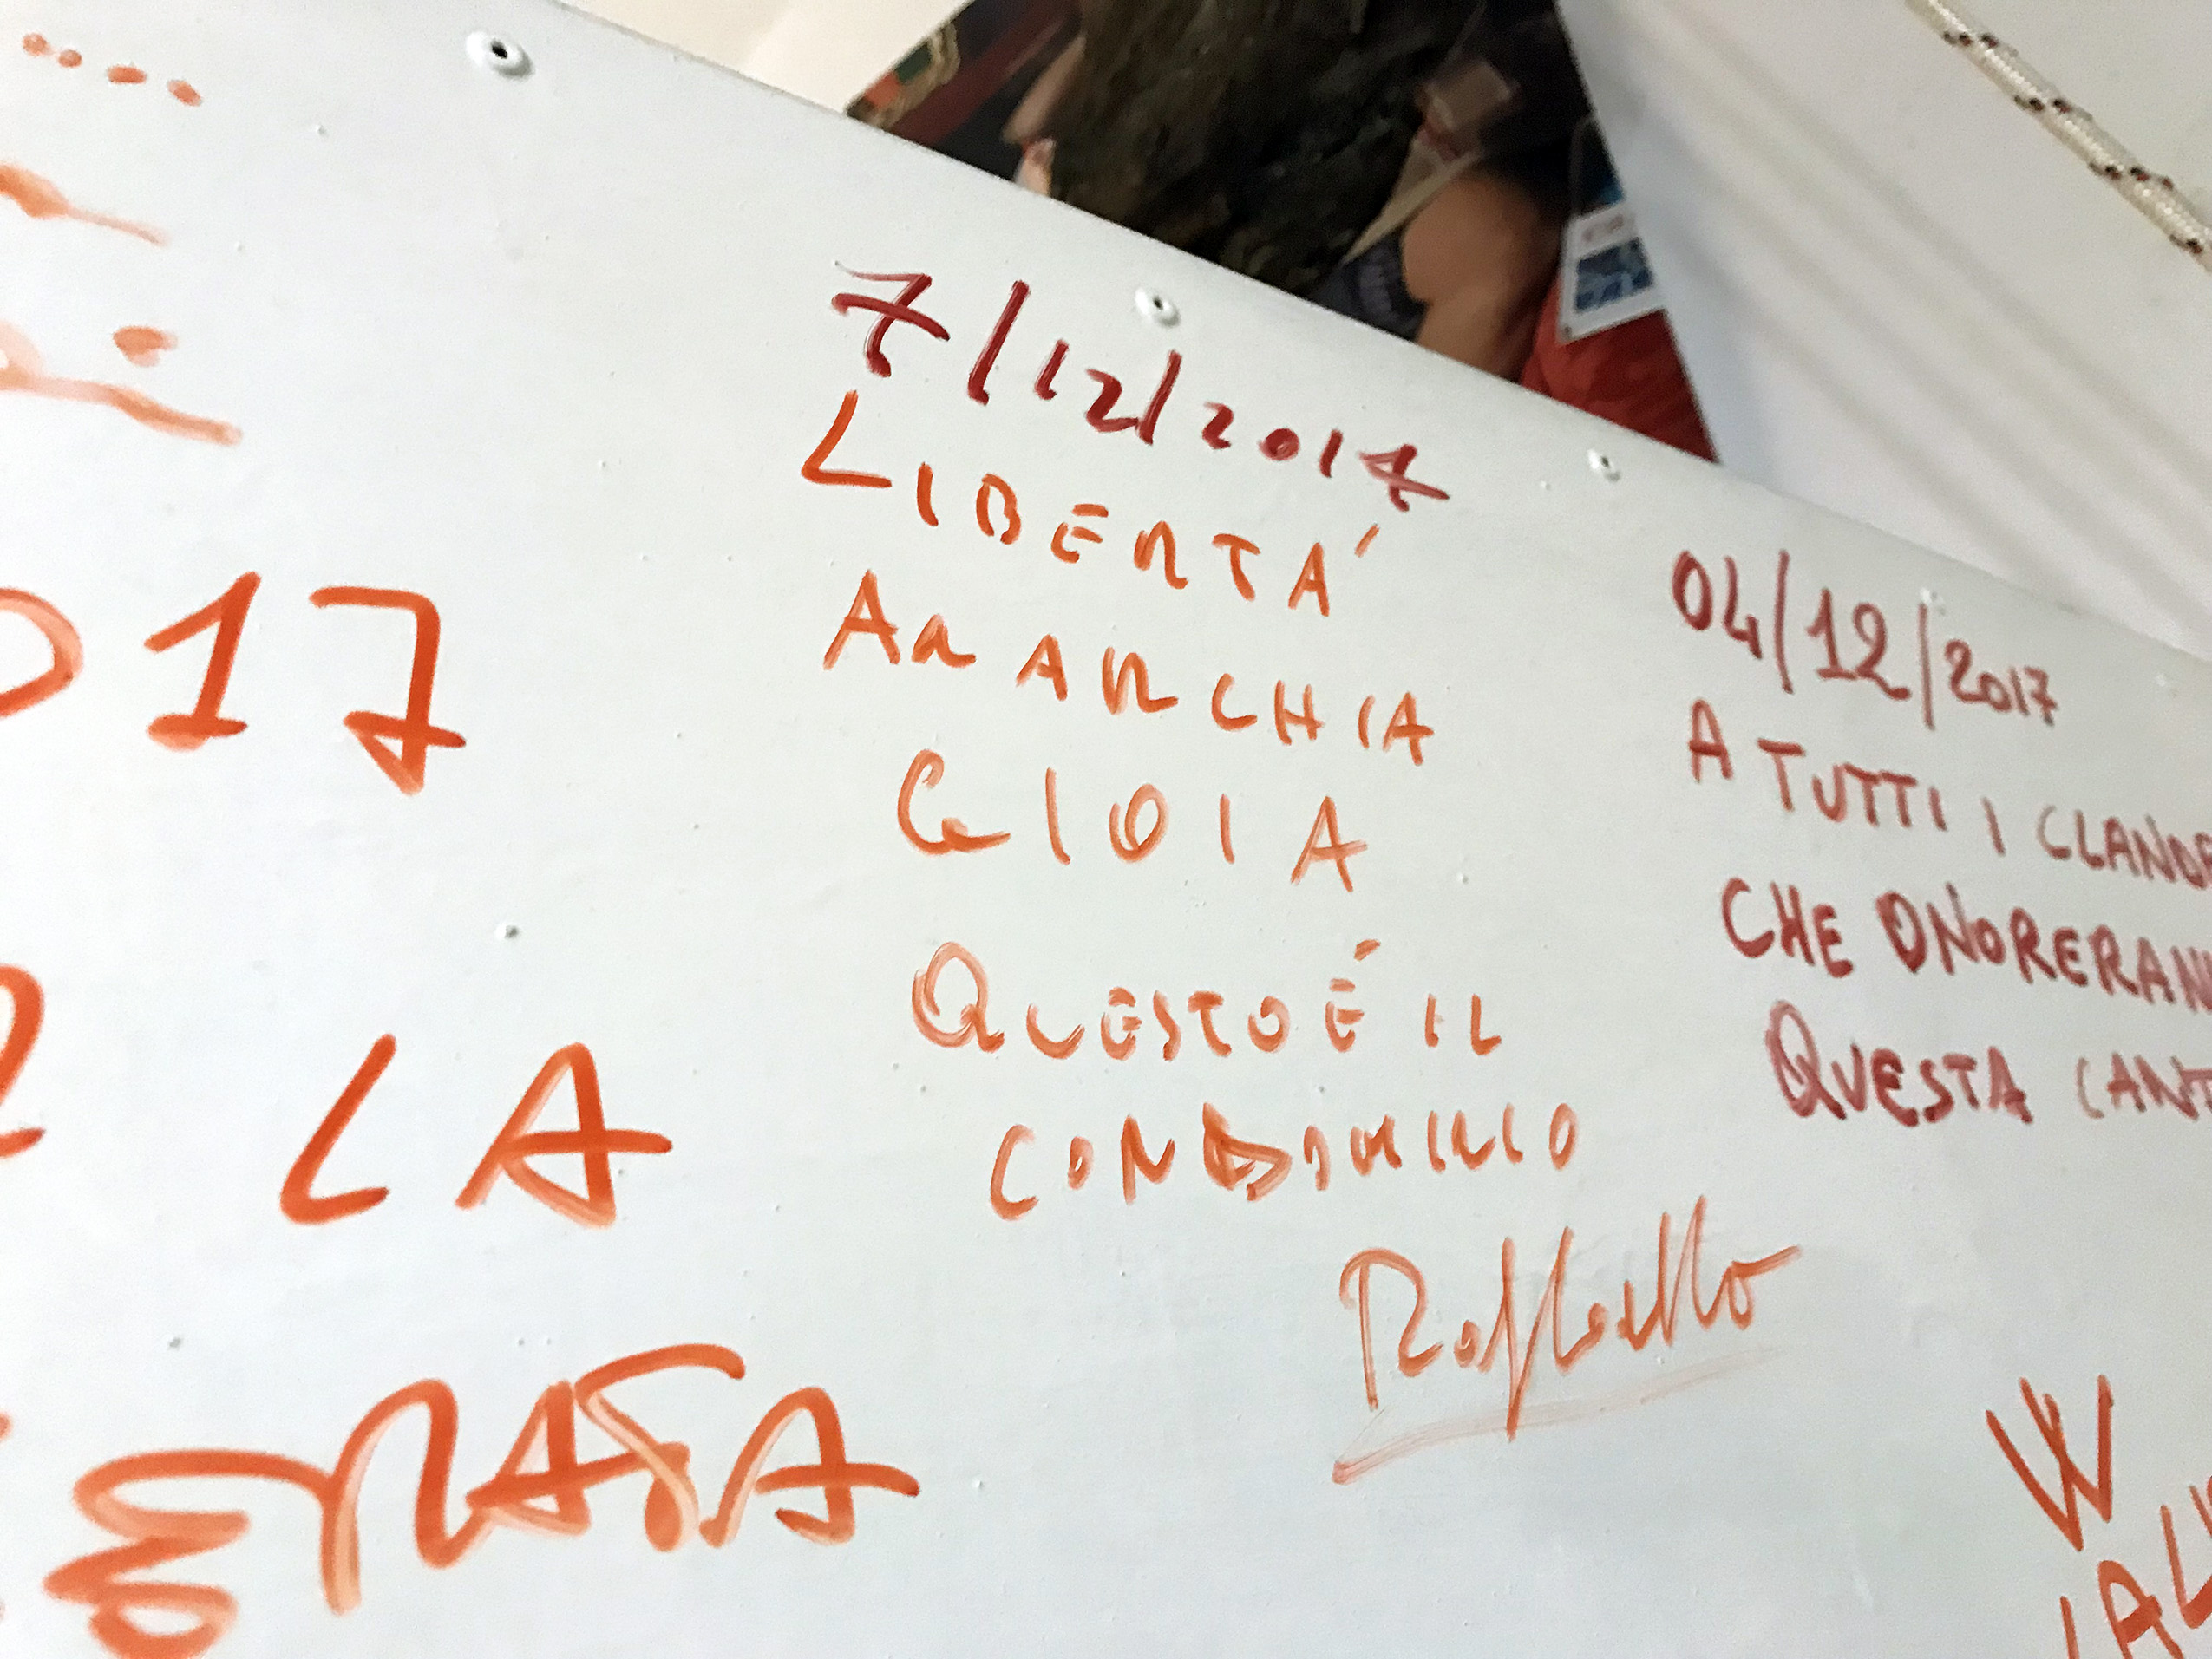 017
LA
7/12/2017
LIBERTÁ
ANARCHIA
GIOIA
QUESTO É IL
CONDOMINIO
Raffaello
04/12/2017
A TUTTI I CLANDE
CHE ONORERANN
QUESTA CANT
W